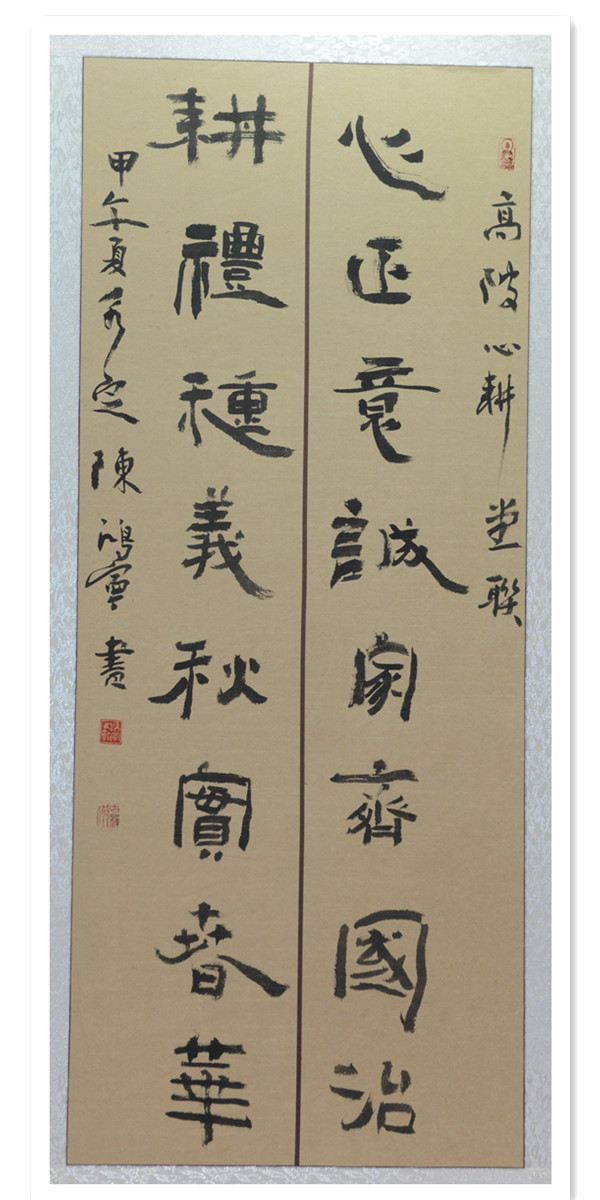 高陂心耕堂聯
心正意誠家齊國治
耕禮種義秋實春華
甲午夏永定陳鴻寧書